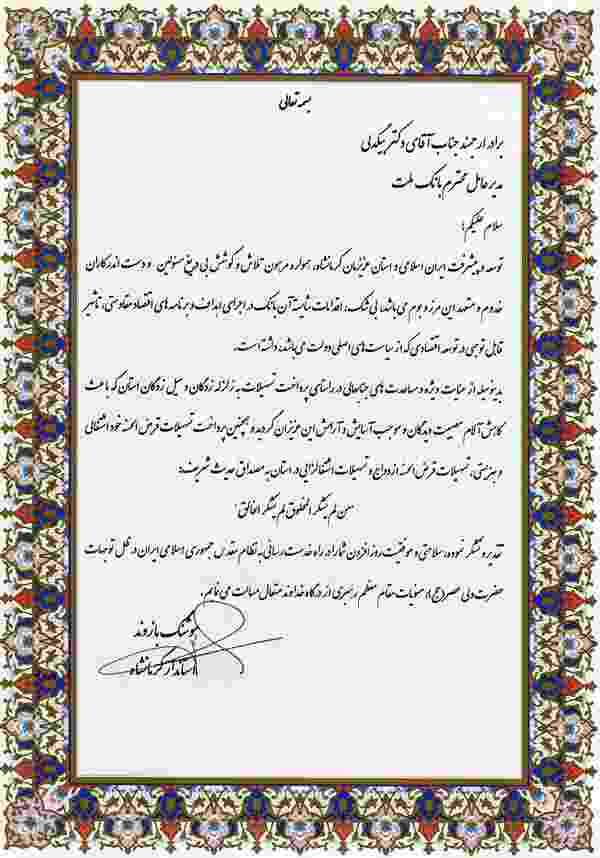 بسمه تعالی
برادر ارجمند جناب آقای دکتر بیگدلی
مدیر عامل محترم بانک ملت
سلام علیکم؛
توسعه و پیشرفت ایران اسلامی و استان عزیزمان کرمانشاه، همواره مرهون تلاش و کوشش بی دریغ مسئولین و دست اندرکاران
خدوم و متعهد این مرز و بوم می باشد، بی شک، اقدامات شایسته آن بانک در اجرای اهداف و برنامه های اقتصاد مقاومتی، تاثیر
قابل توجهی در توسعه اقتصادی که از سیاست های اصلی دولت می باشد، داشته است.
بدینوسیله از عنایت ویژه و مساعدت های جنابعالی در راستای پرداخت تسهیلات به زلزله زدگان و سیل زدگان استان که باعث
کاهش آلام مصیبت دیدگان و موجب آسایش و آرامش این عزیزان گردید و همچنین پرداخت تسهیلات قرض الحسنه خود اشتغالی
و بهزیستی، تسهیلات قرض الحسنه ازدواج و تسهیلات اشتغالزایی در استان به مصداق حدیث شریف:
"من لم یشکر المخلوق لم یشکر الخالق"
تقدیر و تشکر نموده، سلامتی و موفقیت روز افزون شما را در راه خدمت رسانی به نظام مقدس جمهوری اسلامی ایران در ظل توجهات
حضرت ولی عصر(عج)، منویات مقام معظم رهبری از درگاه خداوند متعال مسالت می نمایم.
هوشنگ بازوند
استاندار کرمانشاه